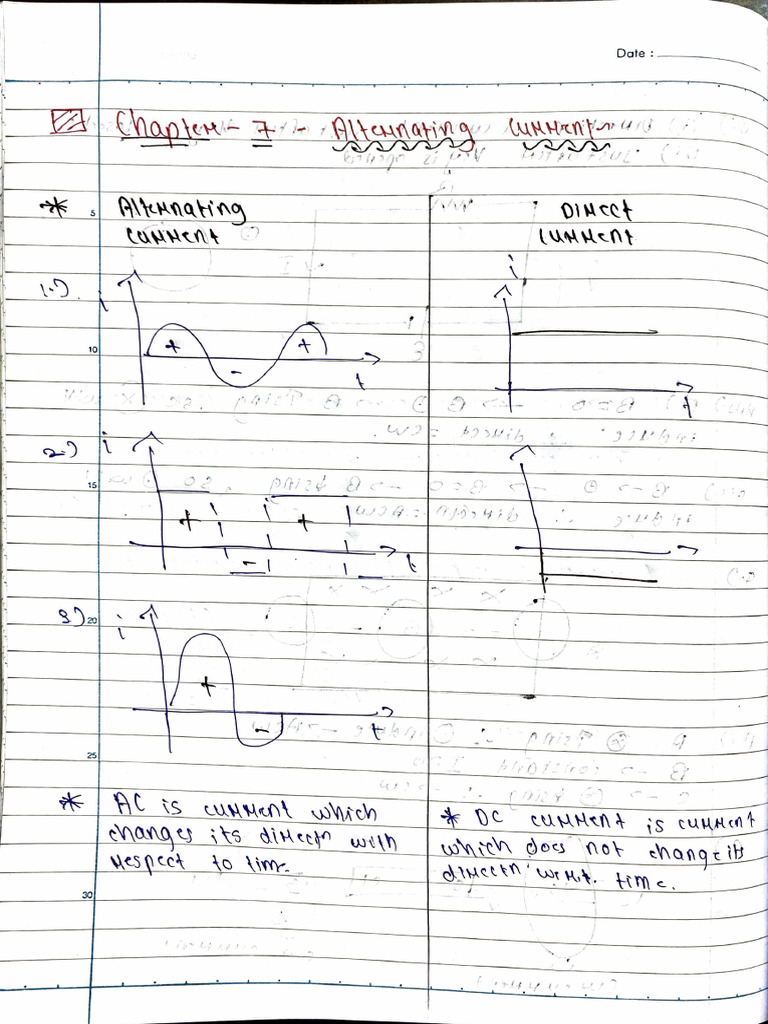 Date :
Chapter - 7 - Alternating current
* Alternating
current
Direct
current
1.)
i
+
-
+
t
i
t
2.)
i
+
-
+
t
3)
i
+
-
t
* AC is current which
changes its directn with
respect to time.
* DC current is current
which does not change its
directn w.r.t. time.
5
10
15
20
25
30